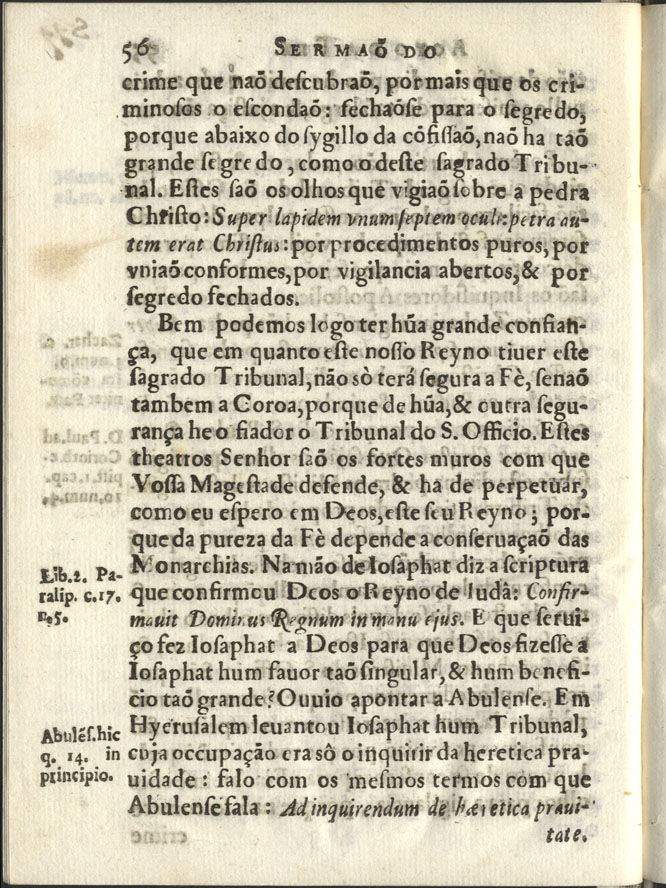 56 SERMAÕ DO
crime que naõ descubraõ, por mais que os cri-
minosos o escondaõ: fechaõse para o segredo,
porque abaixo do sygillo da cõfissaõ, naõ ha taõ
grande segredo, como o deste sagrado Tribu-
nal. Estes saõ os olhos que vigiaõ sobre a pedra
Christo: Super lapidem vnum septem oculi: petra au-
tem erat Christus: por procedimentos puros, por
vniaõ conformes, por vigilancia abertos, & por
segredo fechados.
Bem podemos logo ter hũa grande confian-
ça, que em quanto este nosso Reyno tiuer este
sagrado Tribunal, não sò terá segura a Fè, senaõ
tambem a Coroa, porque de hũa, & outra segu-
rança he o fiador o Tribunal do S. Officio. Estes
theatros Senhor saõ os fortes muros com que
Vossa Magestade defende, & ha de perpetuar,
como eu espero em Deos, este seu Reyno; por-
que da pureza da Fè depende a conseruaçaõ das
Monarchias. Na mão de Iosaphat diz a scriptura
que confirmou Deos o Reyno de Iudâ: Confir-
mauit Dominus Regnum in manu ejus. E que serui-
ço fez Iosaphat a Deos para que Deos fizesse a
Iosaphat hum fauor taõ singular, & hum benefi-
cio taõ grande? Ouuio apontar a Abulense. Em
Hyerusalem leuantou Iosaphat hum Tribunal,
cuja occupação era sô o inquirir da heretica pra-
uidade: falo com os mesmos termos com que
Abulense fala: Ad inquirendum de hæretica praui-
tate.
Lib. 2. Pa-
ralip. c. 17.
n. 5.
Abulẽs. hic
q. 14. in
principio.